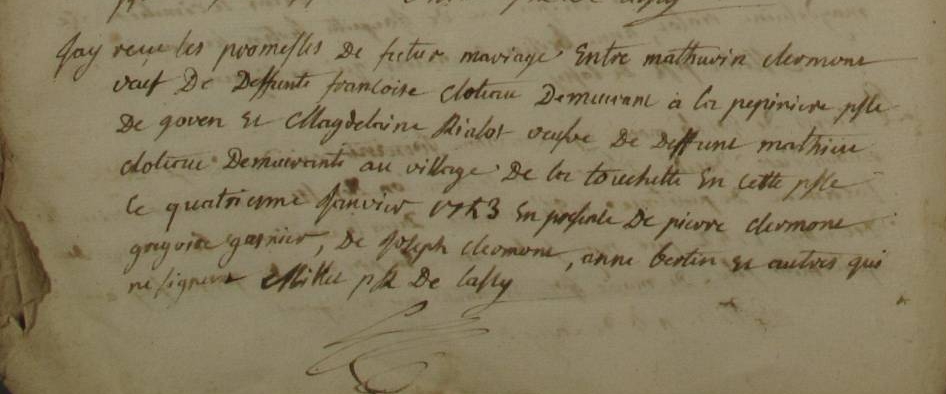 Jay reçu les promesses De futur mariage Entre mathurin clermont
veuf De Deffunte francoise clolieau Demeurant à la pepiniere psse
De goven Et Magdelaine Rialot veufve De Deffunt mathieu
clolieau Demeurante au village De la touchette En cette psse
Ce quatriesme Janvier 1753 En presence De pierre clermont
gregoire garnier, De Joseph clermont, anne bertin Et autres qui
ne signent Millet De lassy